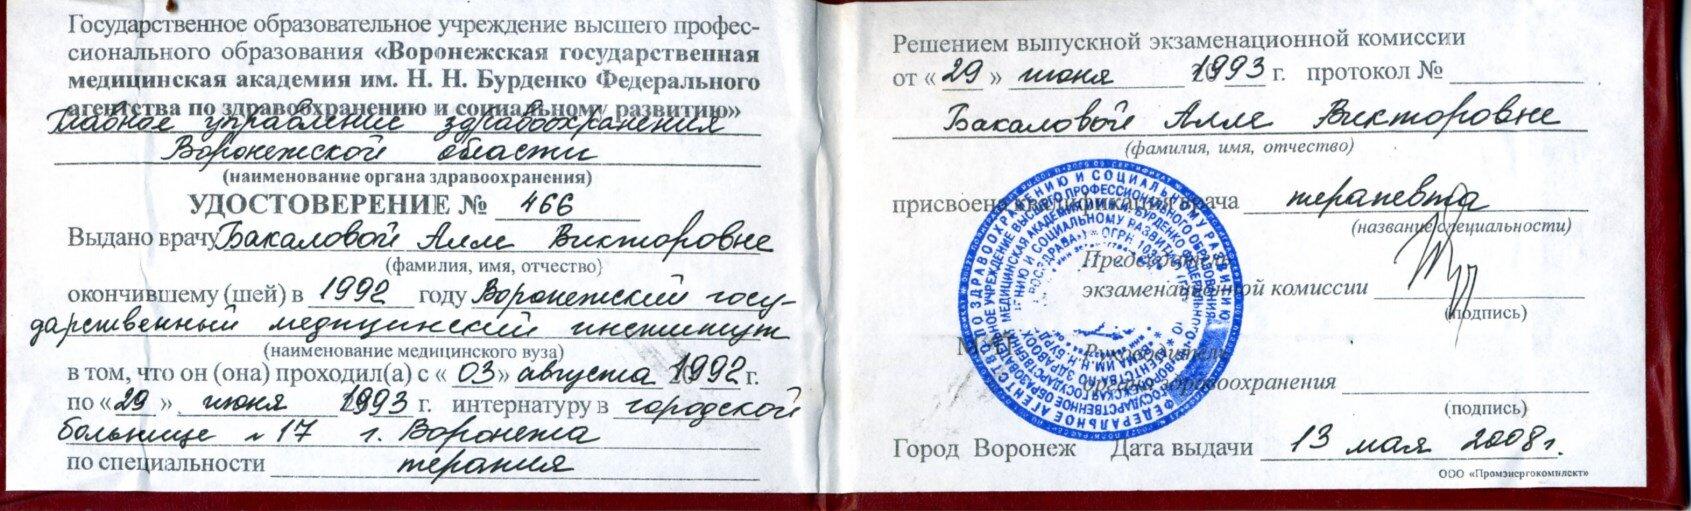 Государственное образовательное учреждение высшего профес-
сионального образования «Воронежская государственная
медицинская академия им. Н. Н. Бурденко Федерального
агентства по здравоохранению и социальному развитию»
Главное управление здравоохранения
Воронежской области
(наименование органа здравоохранения)
УДОСТОВЕРЕНИЕ № 466
Выдано врачу Бакаловой Алле Викторовне
(фамилия, имя, отчество)
окончившему (шей) в 1992 году Воронежский госу-
дарственный медицинский институт
(наименование медицинского вуза)
в том, что он (она) проходил(а) с «03» августа 1992 г.
по «29», июня 1993 г. интернатуру в городской
больнице №17 г. Воронежа
по специальности терапия
Решением выпускной экзаменационной комиссии
от «29» июня 1993 г. протокол №
Бакаловой Алле Викторовне
(фамилия, имя, отчество)
присвоена квалификация врача терапевта
(название специальности)
Председатель
экзаменационной комиссии
(подпись)
Руководитель
органа здравоохранения
(подпись)
Город Воронеж Дата выдачи 13 мая 2008г.
ООО «Промэнергокомплект»